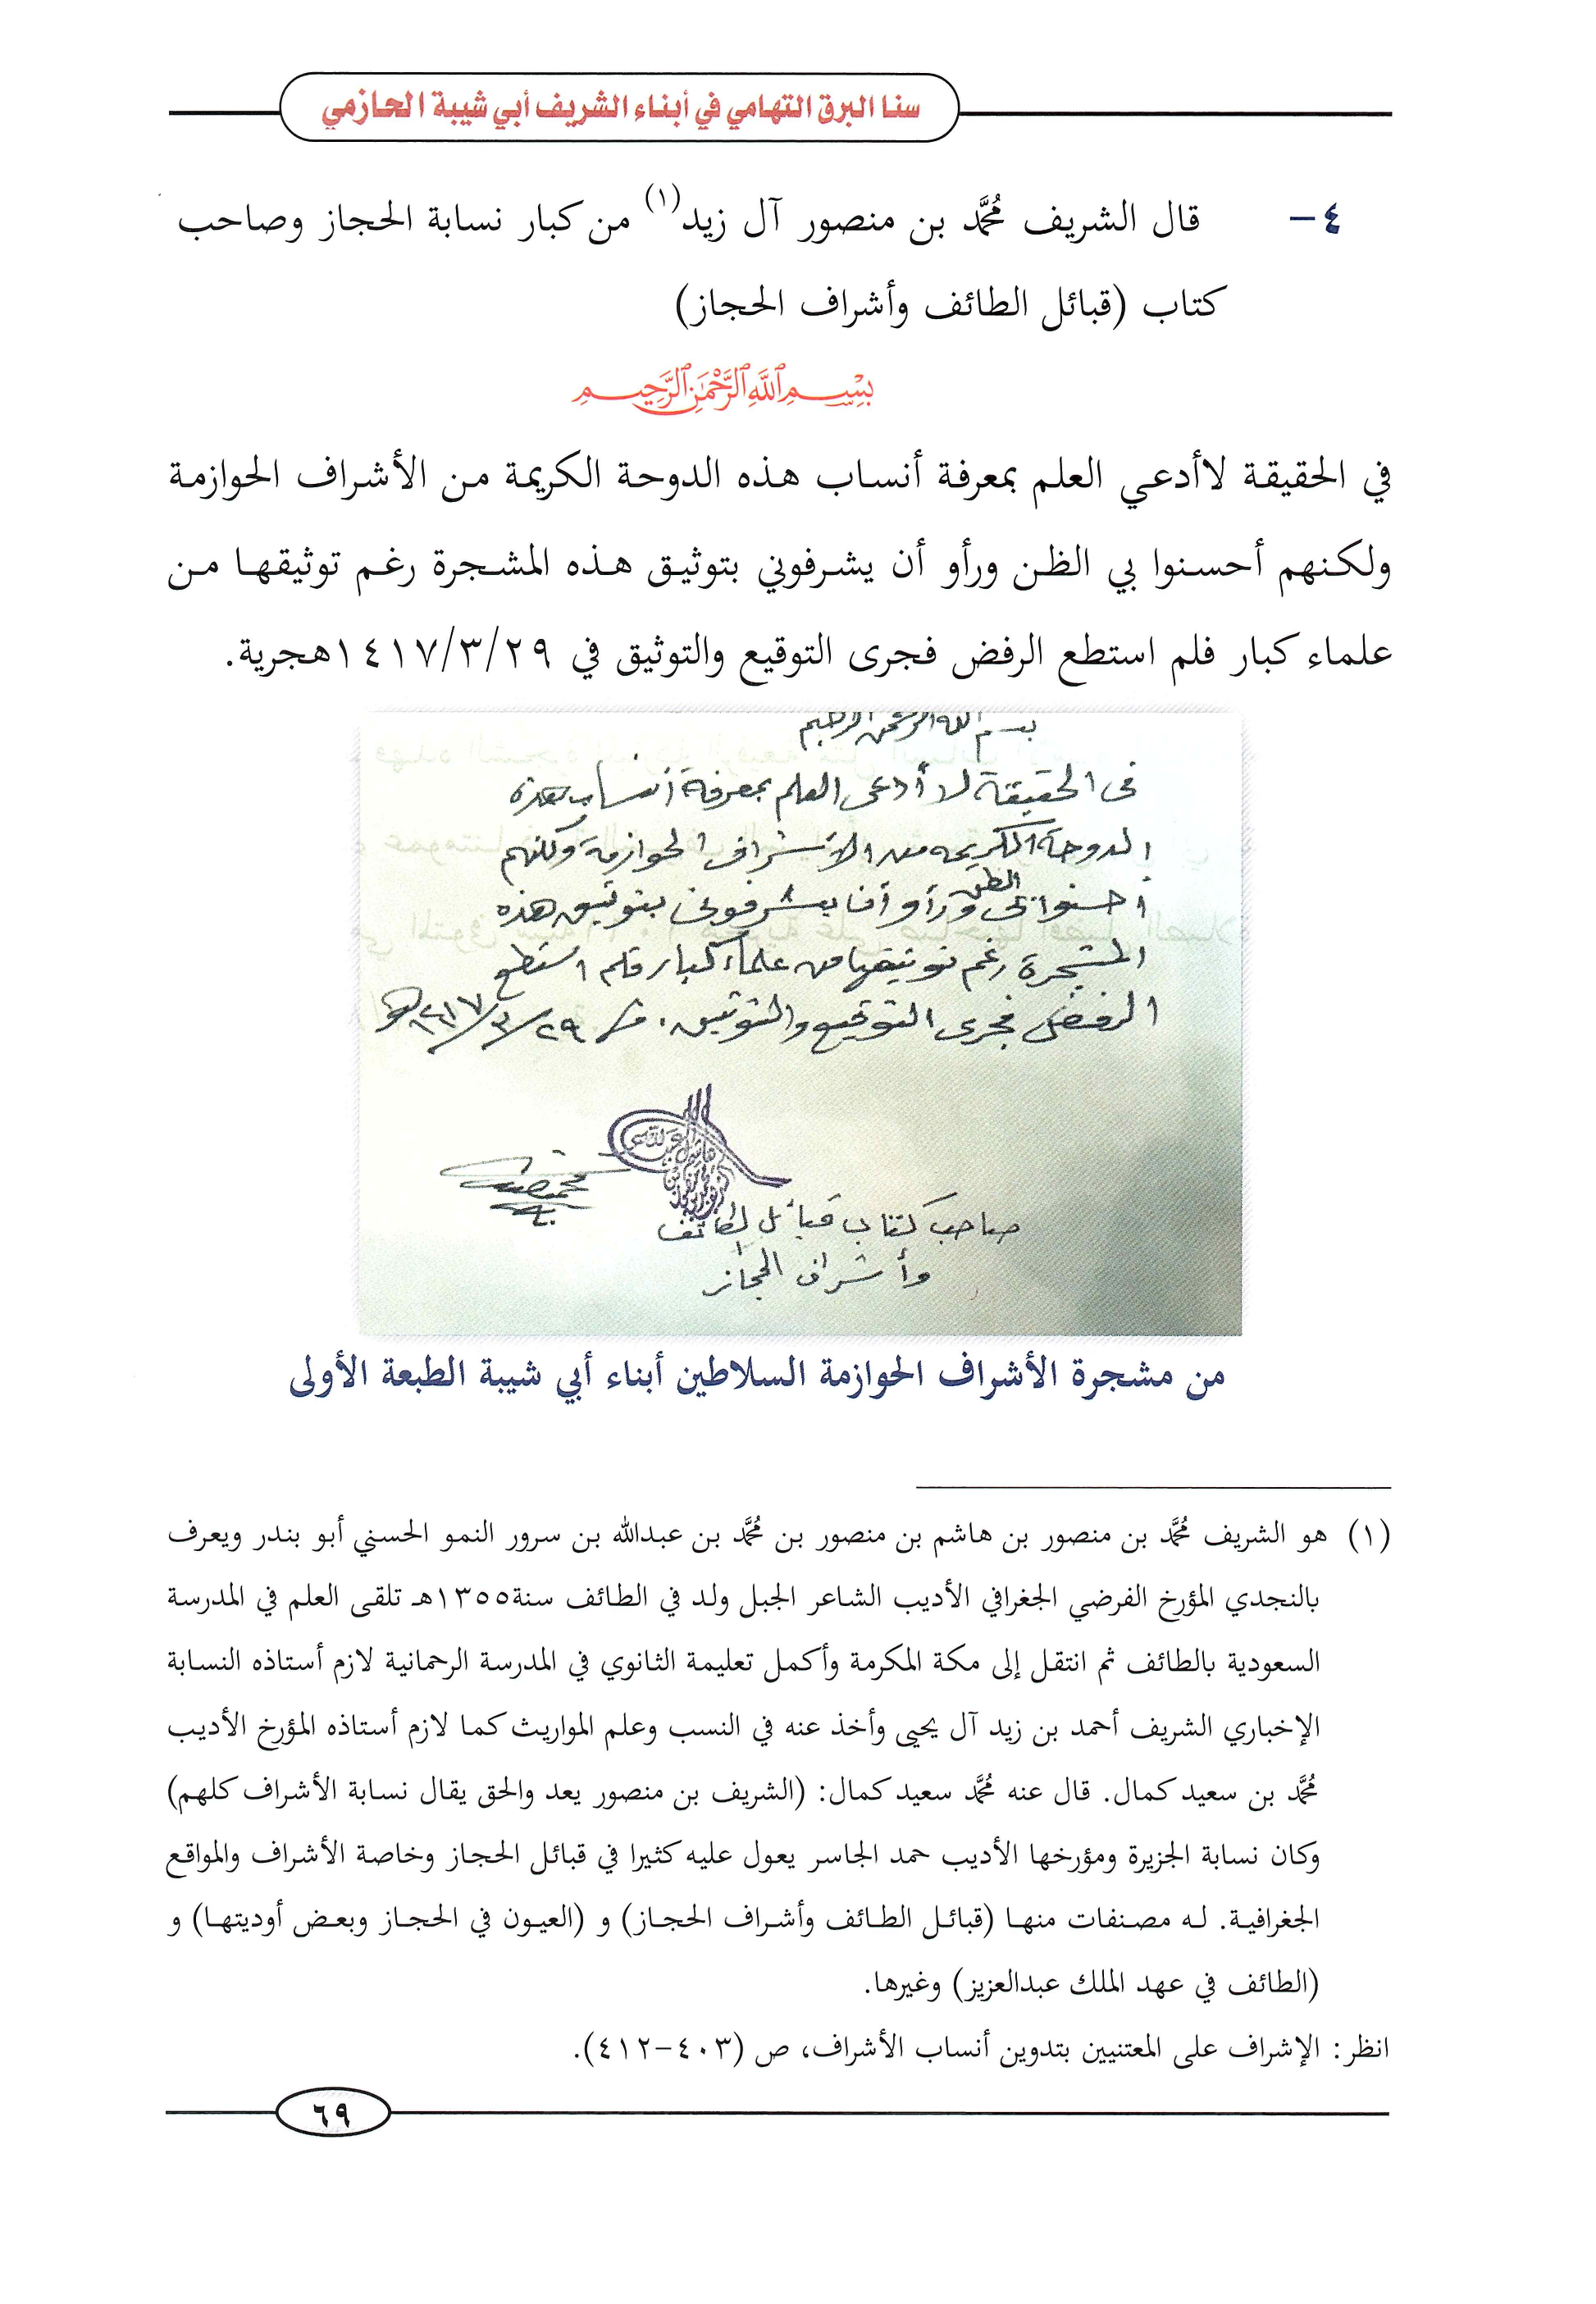 سنا البرق التهامي في أبناء الشريف أبي شيبة الحازمي
٤- قال الشريف مُحمَّد بن منصور آل زيد(١) من كبار نسابة الحجاز وصاحب
كتاب (قبائل الطائف وأشراف الحجاز)
بِسْمِ اللَّهِ الرَّحْمَٰنِ الرَّحِيمِ
في الحقيقة لاأدعي العلم بمعرفة أنساب هذه الدوحة الكريمة من الأشراف الحوازمة
ولكنهم أحسنوا بي الظن ورأو أن يشرفوني بتوثيق هذه المشجرة رغم توثيقها من
علماء كبار فلم استطع الرفض فجرى التوقيع والتوثيق في ١٤١٧/٣/٢٩هجرية.
بسم الله الرحمن الرحيم
في الحقيقة لا أدعى العلم بمعرفة أنساب هذه
الدوحة الكريمه من الأشراف الحوازمة ولكنهم
أحسنوا بي الظن ورأو أن يشرفوني بتوثيق هذه
المشجرة رغم توثيقها من علماء كبار فلم استطع
الرفض فجرى التوقيع والتوثيق. في ١٤١٧/٣/٢٩هـ
صاحب كتاب قبائل الطائف
وأشراف الحجاز
من مشجرة الأشراف الحوازمة السلاطين أبناء أبي شيبة الطبعة الأولى
(١) هو الشريف مُحمَّد بن منصور بن هاشم بن منصور بن مُحمَّد بن عبدالله بن سرور النمو الحسني أبو بندر ويعرف
بالنجدي المؤرخ الفرضي الجغرافي الأديب الشاعر الجبل ولد في الطائف سنة١٣٥٥هـ تلقى العلم في المدرسة
السعودية بالطائف ثم انتقل إلى مكة المكرمة وأكمل تعليمة الثانوي في المدرسة الرحمانية لازم أستاذه النسابة
الإخباري الشريف أحمد بن زيد آل يحيى وأخذ عنه في النسب وعلم المواريث كما لازم أستاذه المؤرخ الأديب
مُحمَّد بن سعيد كمال. قال عنه مُحمَّد سعيد كمال: (الشريف بن منصور يعد والحق يقال نسابة الأشراف كلهم)
وكان نسابة الجزيرة ومؤرخها الأديب حمد الجاسر يعول عليه كثيرا في قبائل الحجاز وخاصة الأشراف والمواقع
الجغرافية. له مصنفات منها (قبائل الطائف وأشراف الحجاز) و (العيون في الحجاز وبعض أوديتها) و
(الطائف في عهد الملك عبدالعزيز) وغيرها.
انظر: الإشراف على المعتنيين بتدوين أنساب الأشراف، ص (٤٠٣-٤١٢).
٦٩